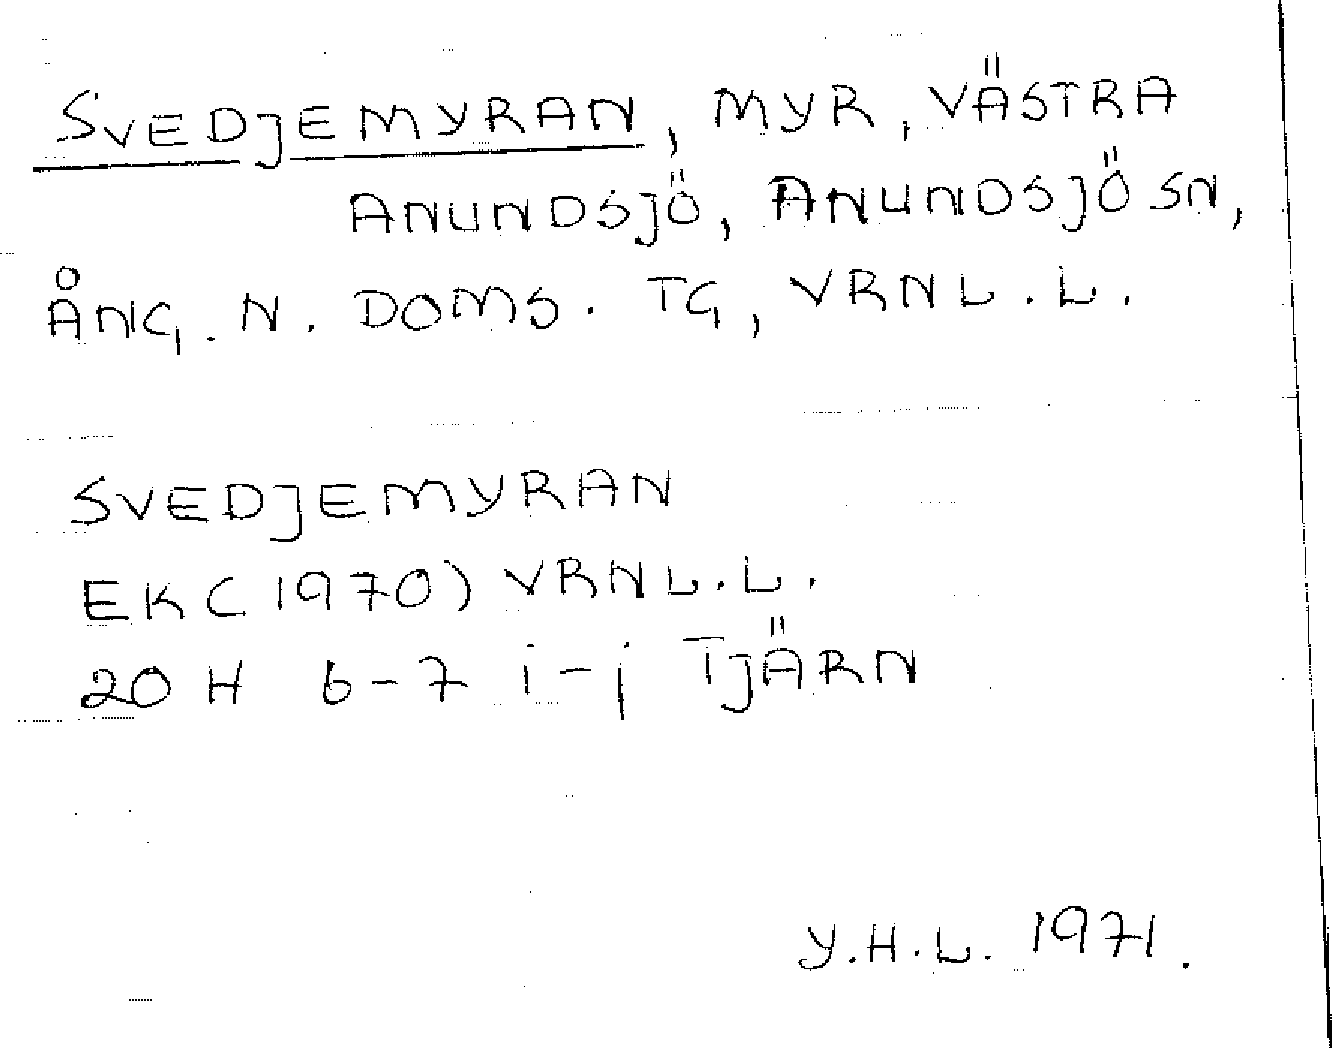 SVEDJEMYRAN, MYR, VÄSTRA
ANUNDSJÖ, ANUNDSJÖ SN,
ÅNG. N. DOMS. TG, VRNL. L.
SVEDJEMYRAN
EK (1970) VRNL. L.
20 H 6-7 i-j TJÄRN
Y.H.L. 1971.